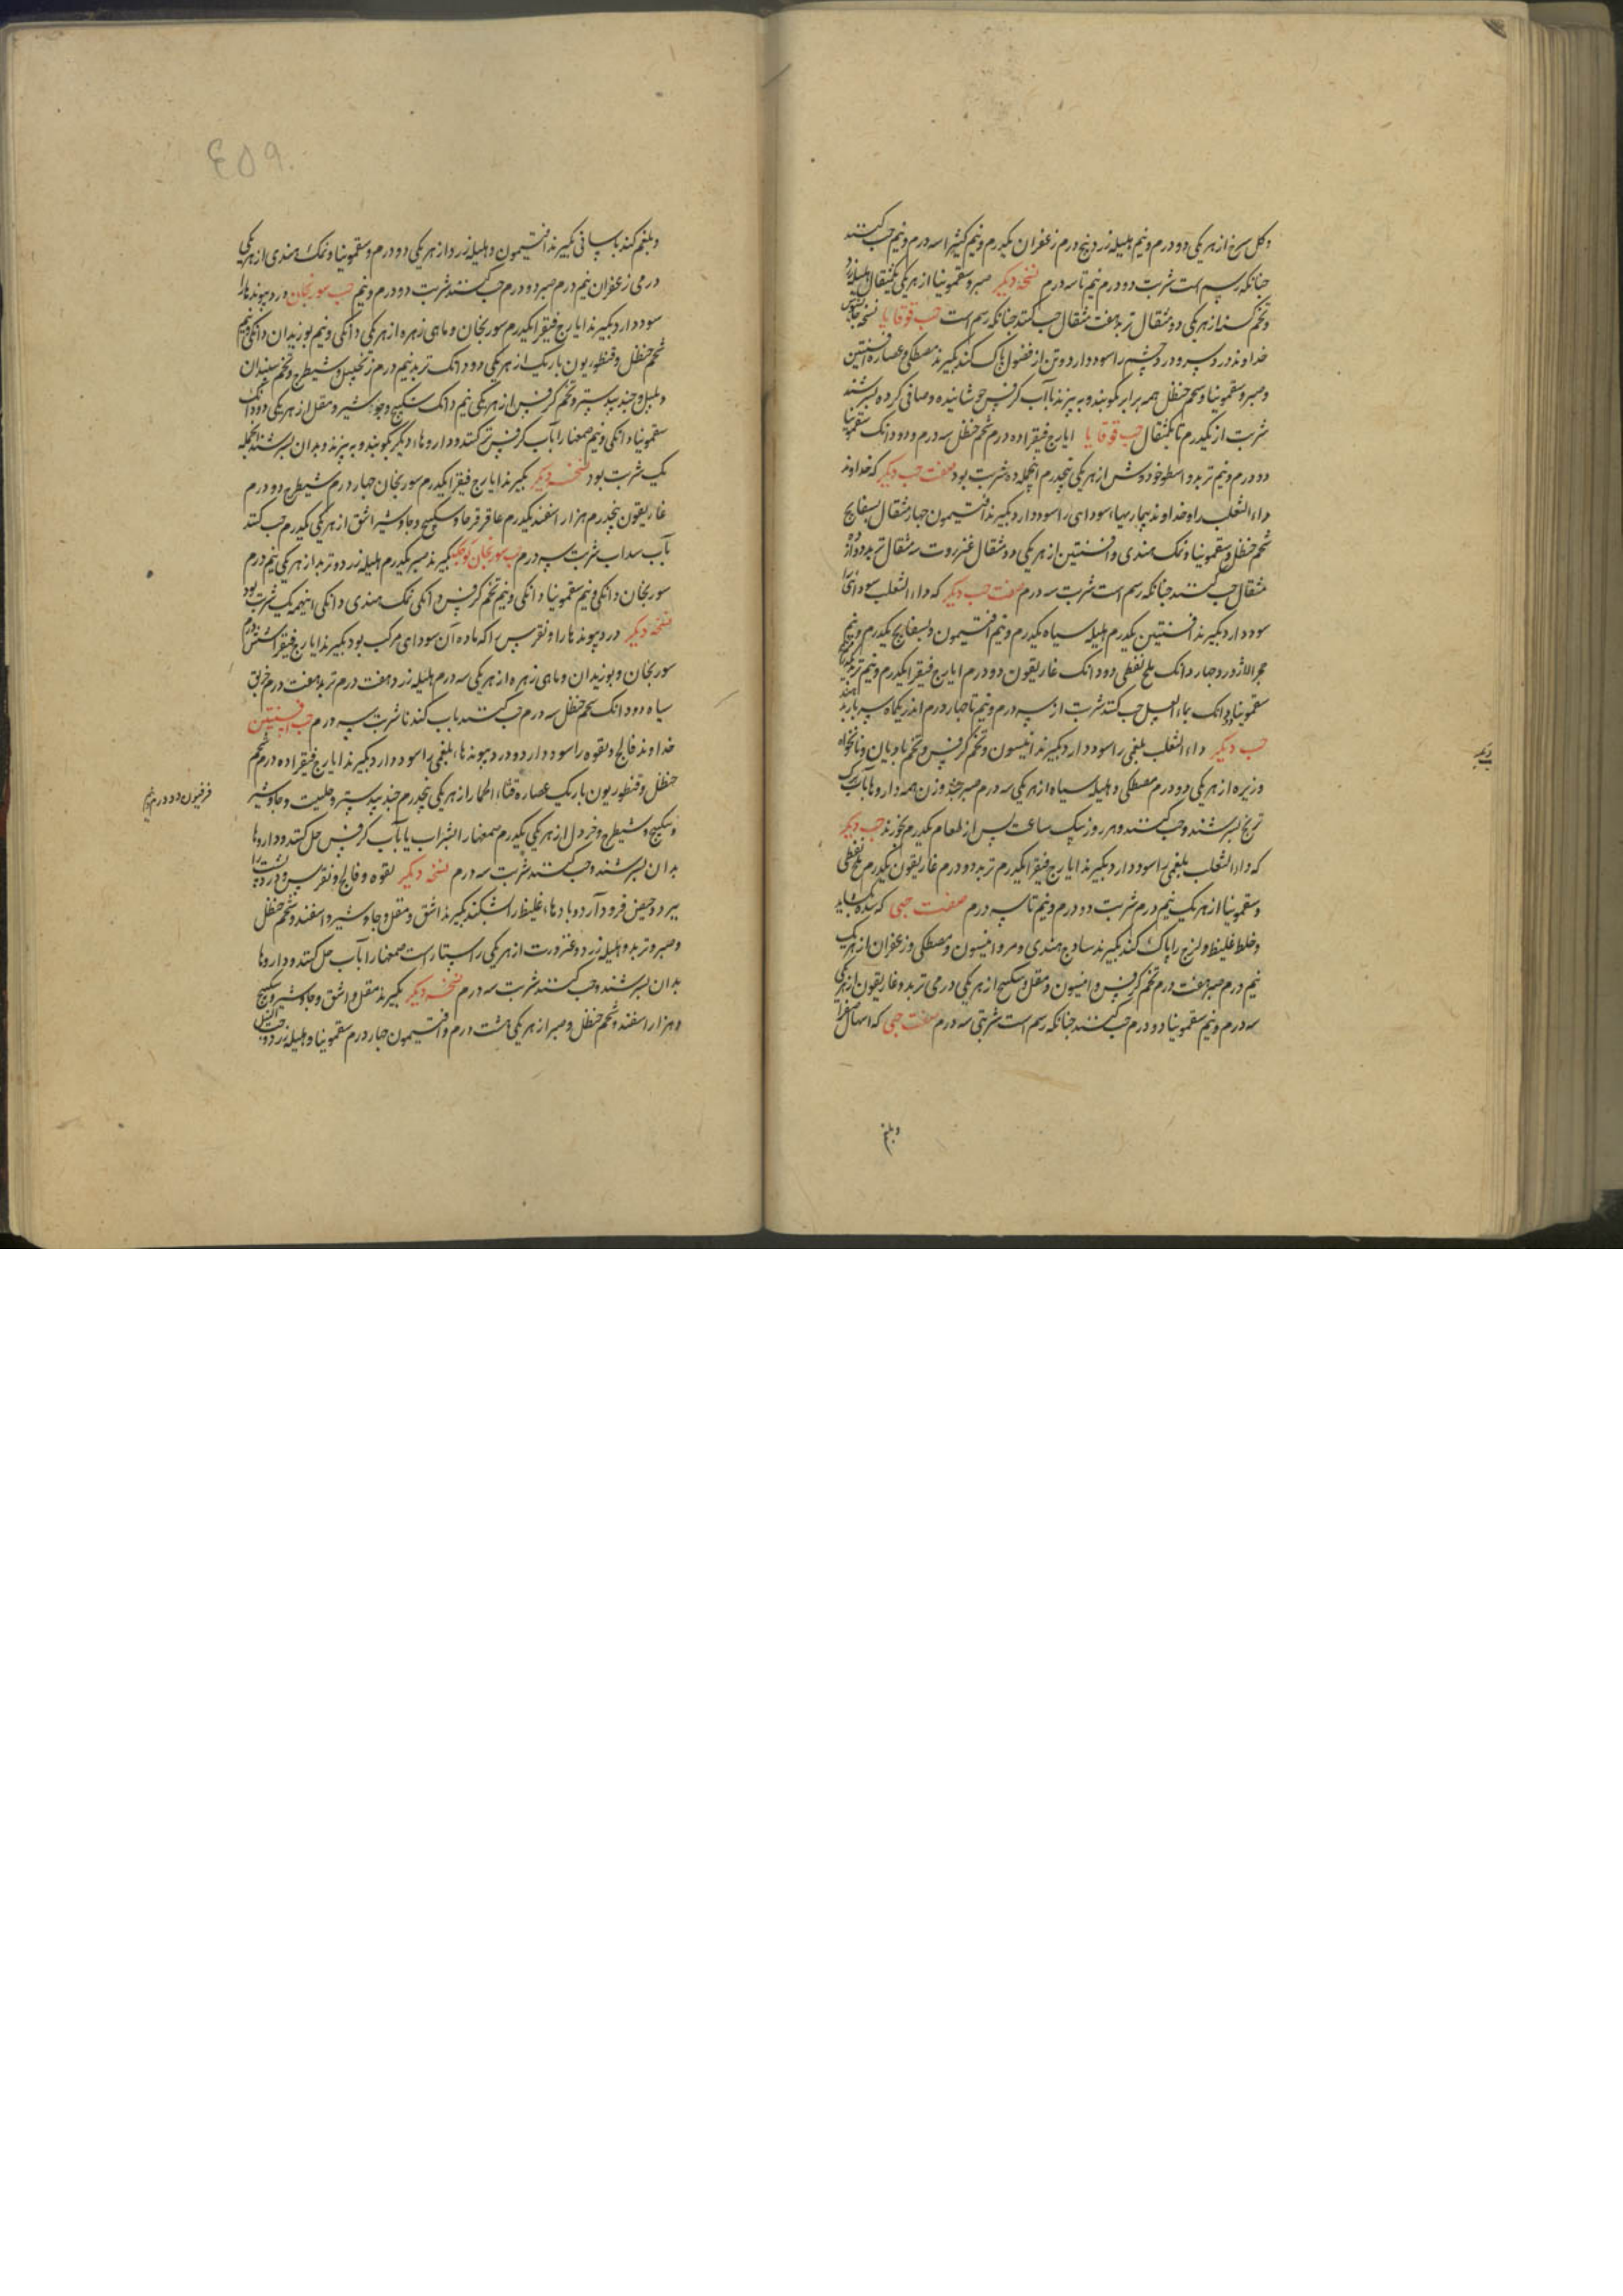 وکل سرخ از هر یکی دو درم و نیم هلیله زرد پنج درم زعفران یکدرم و نیم کثیرا سه درم و نیم حب کنند
چنانکه رسم است شربت دو درم نیم تا سه درم نسخه دیگر صبر و سقمونیا از هر یکی یکمثقال هلیله زرد
وتخم از هر یکی دو مثقال تربد هفت مثقال حب کنند چنانکه رسم است حب قوقایا نسخه جالینوس
خداوند درد سر و درد چشم را سود دارد و تن از فضول پاک کند بگیرند مصطکی و عصاره افسنتین
وصبر و سقمونیا و شحم حنظل همه برابر بکوبند و به بیزند با آب کرفس جوشانیده و صافی کرده بسرشند
شربت از یکدرم تا یکمثقال حب قوقایا ایارج فیقرا ده درم شحم حنظل سه درم و دو دانک سقمونیا
دو درم و نیم تربد و اسطوخودوش از هر یکی پنجدرم اینجمله ده شربت بود صفت حب دیگر که خداوند
داء الثعلب را و خداوند بیماریهاء سودای را سود دارد بگیرند افتیمون چهار مثقال بسفایج
شحم حنظل و سقمونیا و نمک هندی و افسنتین از هر یکی دو مثقال عنزروت سه مثقال تربد دوازده
مثقال حب کنند چنانکه رسم است شربت سه درم صفت حب دیگر که داء الثعلب سودائی را
سود دارد بگیرند افسنتین یکدرم هلیله سیاه یکدرم و نیم افتیمون و بسفایج یکدرم و نیم
حجر اللاژورد چهار دانک ملح نفطی دو دانک غاریقون دو درم ایارج فیقرا یکدرم و نیم تربد
سقمونیا دو دانک بماء العسل حب کنند شربت از سه درم و نیم تا چهار درم اندر یکماه سه بار
حب دیگر داء الثعلب بلغمی را سود دارد بگیرند انیسون و تخم کرفس و تخم بادیان و نانخواه
وزیره از هر یکی دو درم مصطکی و هلیله سیاه از هر یکی سه درم صبر چند وزن همه داروها بآب برک
ترنج بسرشند و حب کنند و هر روز یک ساعت پس از طعام یکدرم بخورند حب دیگر
که داء الثعلب بلغمی را سود دارد بگیرند ایارج فیقرا یکدرم تربد دو درم غاریقون یکدرم ملح نفطی
وسقمونیا از هر یک نیم درم شربت دو درم و نیم تا سه درم صفت حبی که سده بکشاید
وخلط غلیظ و لزج را پاک کند بگیرند ساذج هندی و مر و انیسون و مصطکی و زعفران از هر یک
نیم درم صبر هفت درم تخم کرفس و انیسون و مقل و سکبیج از هر یکی درمی تربد و غاریقون از هر یکی
سه درم و نیم سقمونیا دو درم حب کنند چنانکه رسم است شربتی سه درم صفت حبی که اسهال صفرا
وبلغم
وبلغم کند باسانی بگیرند افتیمون و هلیله زرد از هر یکی دو درم و سقمونیا و نمک هندی از هر یکی
درمی زعفران نیم درم صبر دو درم حب کنند شربت دو درم و نیم حب سورنجان درد پیوندها را
سود دارد بگیرند ایارج فیقرا یکدرم سورنجان و ماهی زهره از هر یکی دانکی و نیم بوزیدان دانکی و نیم
شحم حنظل و قنطوریون باریک از هر یکی دو دانک تربد نیم درم زنجبیل و شیطرج و تخم سپندان
و پلپل و جند بیدستر و تخم کرفس از هر یکی نیم دانک سکبیج و جوشیر و مقل از هر یکی دو دانک
سقمونیا دانکی و نیم صمغها را بآب کرفس تر کنند و داروهاء دیگر بکوبند و به بیزند و بدان بسرشند اینجمله
یک شربت بود نسخه دیگر بگیرند ایارج فیقرا یکدرم سورنجان چهار درم شیطرج دو درم
غاریقون پنجدرم هزار اسفند یکدرم عاقرقرحا و سکبیج و جاوشیر اشق از هر یکی یکدرم حب کنند
بآب سداب شربت سه درم حب سورنجان کوچک بگیرند صبر یکدرم هلیله زرد و تربد از هر یکی نیم درم
سورنجان دانکی و نیم سقمونیا دانکی و نیم تخم کرفس دانکی نمک هندی دانکی اینهمه یک شربت بود
نسخه دیگر درد پیوندها را و نقرس را که ماده آن سودای مرکب بود بگیرند ایارج فیقرا شش درم
سورنجان و بوزیدان و ماهی زهره از هر یکی سه درم هلیله زرد هفت درم تربد هفت درم خربق
سیاه دو دانک شحم حنظل سه درم حب کنند بآب کندنا شربت سه درم حب افسنتین
خداوند فالج و لقوه را سود دارد و درد پیوندهاء بلغمی را سود دارد بگیرند ایارج فیقرا ده درم شحم
حنظل و قنطوریون باریک عصاره قثاء الحمار از هر یکی پنجدرم جند بیدستر و حلتیت و جاوشیر
وسکبیج و شیطرج و خردل از هر یکی یکدرم صمغها را بشراب یا بآب کرفس حل کنند و داروها
بدان بسرشند و حب کنند شربت سه درم نسخه دیگر لقوه و فالج و نقرس و درد پشت را
ببرد و حیض فرود آرد و بادهاء غلیظ را بشکند بگیرند اشق و مقل و جاوشیر و اسفند و شحم حنظل
وصبر و تربد و هلیله زرد و عنزروت از هر یکی راستا راست صمغها را بآب حل کنند و داروها
بدان بسرشند و حب کنند شربت سه درم نسخه دیگر بگیرند مقل و اشق و جاوشیر و سکبیج
وهزار اسفند و شحم حنظل و صبر از هر یکی هشت درم و افتیمون چهار درم سقمونیا و هلیله زرد و
فرفیون دو درم و نیم
٤٥٩